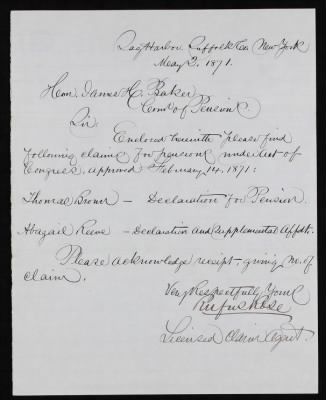 Sag Harbor Suffolk Co. New York
May 2, 1871.
Hon. James H. Baker
Com. of Pensions.
Sir.
Enclosed herewith please find
following claims for pensions under Act of
Congress, approved February 14, 1871:
Thomas Brown — Declaration for Pension.
Abagail Reeve — Declaration and Supplemental Affdt.
Please acknowledge receipt – giving No. of
claim.
Very Respectfully Yours
Rufus Rose
Licensed Claim Agent.